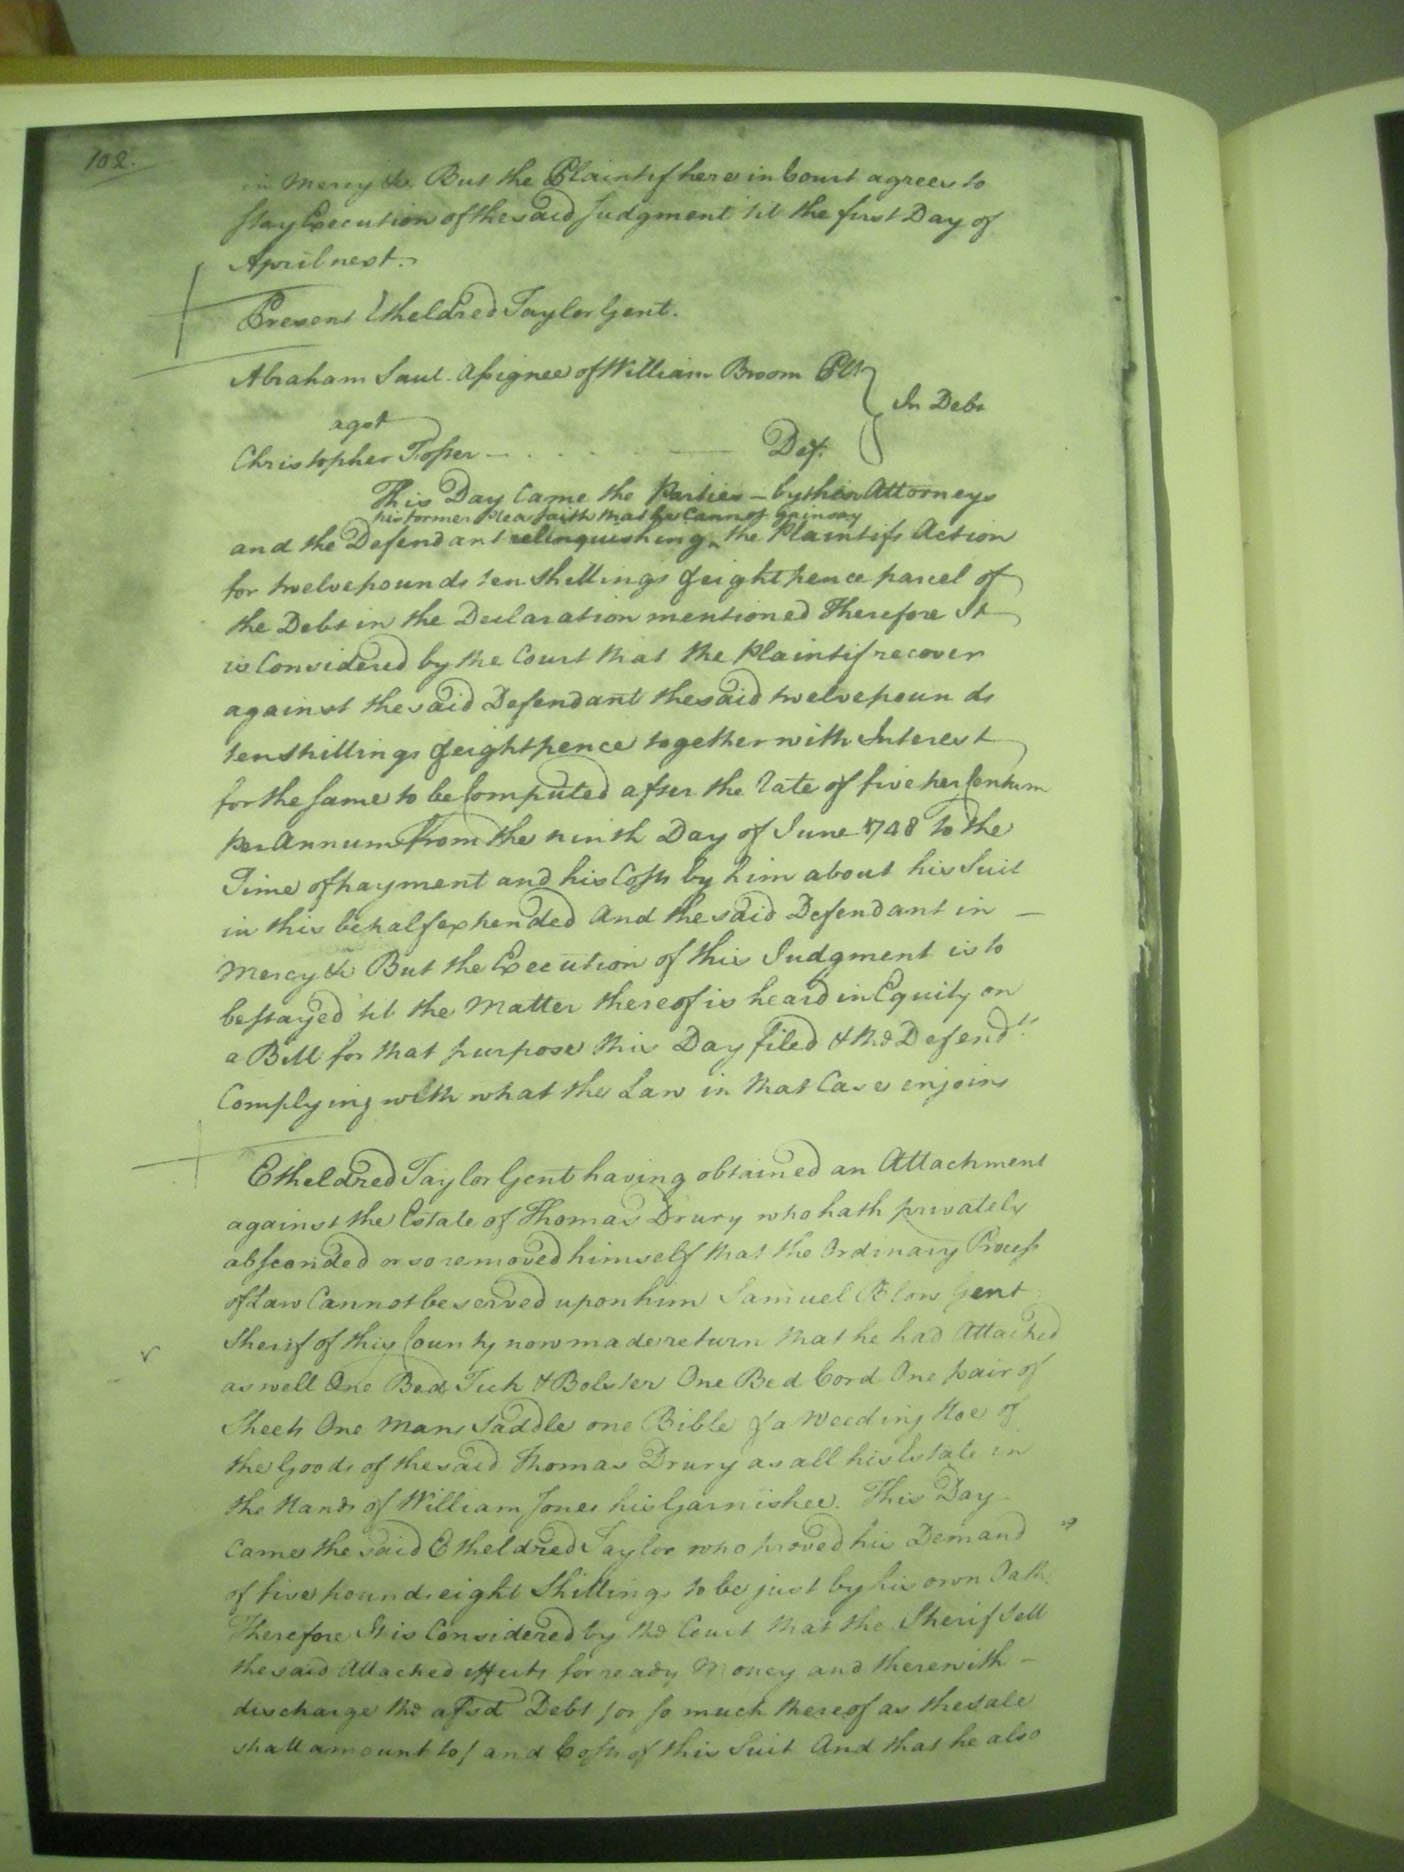 102.
in Mercy &c. But the Plaintif here in Court agrees to
stay Execution of the said Judgment 'til the first Day of
April next.
Present Etheldred Taylor Gent.
Abraham Saul Assignee of William Broom Plt
In Debt
agst
Christopher Foster Def.
This Day Came the Parties by their Attorneys
his former Plea saith that he Cannot gainsay
and the Defendant relinquishing the Plaintifs Action
for twelve pounds ten Shillings & eight pence parcel of
the Debt in the Declaration mentioned Therefore It
is Considered by the Court that the Plaintif recover
against the said Defendant the said twelve pounds
ten shillings & eight pence together with Interest
for the same to be Computed after the rate of five per Centum
per Annum from the ninth Day of June 1748 To the
Time of payment and his Costs by him about his Suit
in this behalf expended And the said Defendant in —
Mercy &c But the Execution of this Judgment is to
be stayed 'til the Matter thereof is heard in Equity on
a Bill for that purpose this Day filed & the Defendt.
Complying with what the Law in that Case enjoins
Etheldred Taylor Gent having obtained an Attachment
against the Estate of Thomas Drury who hath privately
absconded or so removed himself that the Ordinary Process
of Law Cannot be served upon him Samuel Blow Gent
Sherif of this County now made return that he had Attached
as well One Bed Tick & Bolster One Bed Cord One pair of
Sheets One Mans Saddle one Bible & a Weeding Hoe of
the Goods of the said Thomas Drury as all his Estate in
the Hands of William Jones his Garnishee. This Day
Came the said Etheldred Taylor who proved his Demand
of five pounds eight Shillings to be just by his own Oath
Therefore It is Considered by the Court that the Sherif Sell
the said Attached effects for ready Money and therewith —
discharge the afsd Debt /or so much thereof as the sale
shall amount to/ and Costs of this Suit And that he also